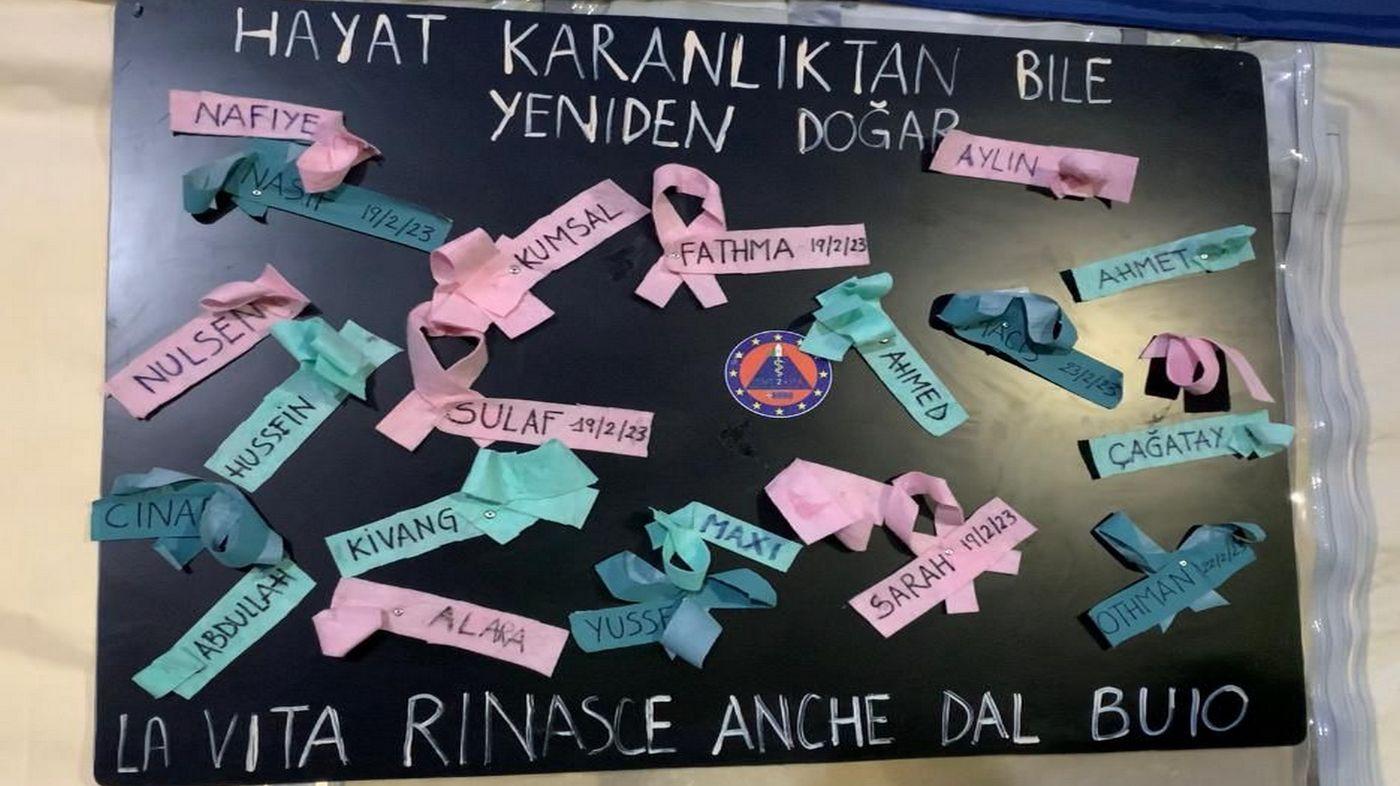 HAYAT KARANLIKTAN BILE
YENIDEN DOĞAR
NAFIYE
AYLIN
NASIF 19/2/23
KUMSAL
FATHMA 19/2/23
AHMET
NULSEN
23/2/23
AHMED
HUSSEIN
SULAF 19/2/23
ÇAĞATAY
CINA
KİVANG
MAXI
SARAH 19/2/23
OTHMAN
ABDULLAH
ALARA
YUSSE
LA VITA RINASCE ANCHE DAL BUIO